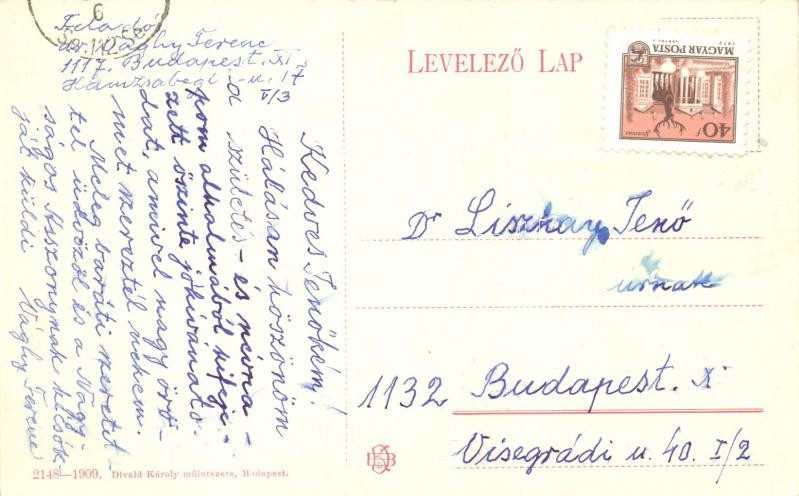 6
Feladó:
dr. Vághy Ferenc
1117. Budapest. XI.
Hamzsabégi-u. 17
V/3
LEVELEZŐ LAP
MAGYAR POSTA
1972
40f
Kedves Jenőkém!
Hálásan köszönöm
a születés- és névna-
pom alkalmából kifeje-
zett őszinte jókívánato-
dat, amivel nagy örö-
met szereztél nekem.
Meleg baráti szeretet-
tel üdvözöl és a Nagy-
ságos Asszonynak kézcsók-
ját küldi Vághy Ferenc
Dr Lisznay Jenő
úrnak
1132 Budapest.
Visegrádi u. 40. I/2
2148—1909. Divald Károly műintézete, Budapest.